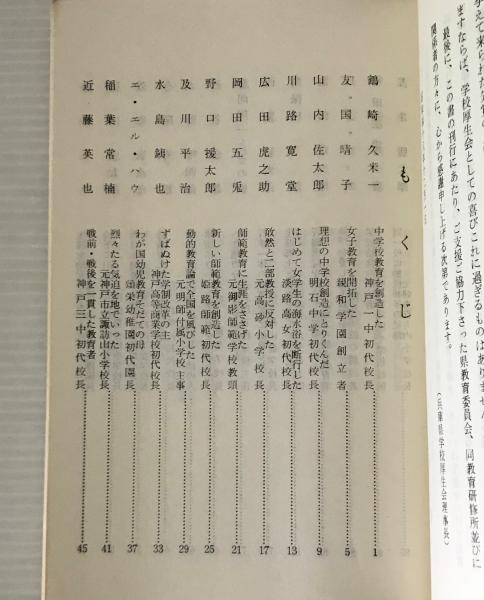 与えて来られた
ますならば、学校厚生会としての喜びこれに過ぎるものはありません。
最後に、この書の刊行にあたり、ご支援ご協力下さった県教育委員会、同教育研修所並びに
関係者の方々に、心から感謝申し上げる次第であります。
(兵庫県学校厚生会理事長)
もくじ
鶴崎久米一
中学校教育を創造した
神戸一中初代校長
1
友国晴子
女子教育を開拓した
親和学園創立者
5
山内佐太郎
理想の中学校創造にとりくんだ
明石中学初代校長
9
川路寛堂
はじめて女学生の海水浴を断行した
淡路高女初代校長
13
広田虎之助
敢然と二部教授に反対した
元高砂小学校長
17
岡田五兎
師範教育に生涯をささげた
元御影師範学校教頭
21
野口援太郎
新しい師範教育を創造した
姫路師範初代校長
25
及川平治
動的教育論で全国を風びした
元明師付属小学校主事
29
水島銕也
ずばぬけた学制改革の主
神戸高等商業学校初代校長
33
エ・エル・ハウ
わが国幼児教育そだての母
頌栄幼稚園初代園長
37
稲葉常楠
烈々たる気迫を地でいった
元神戸市立諏訪山小学校長
41
近藤英也
戦前・戦後を一貫した教育者
神戸三中初代校長
45